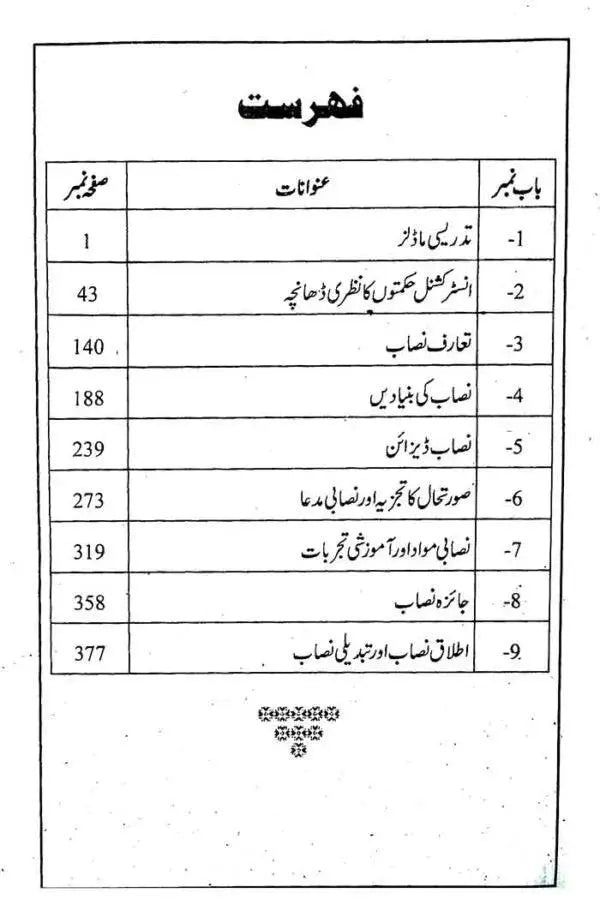 فہرست
باب نمبر عنوانات صفحہ نمبر
1- تدریسی ماڈلز 1
2- انسٹرکشنل حکمتوں کا نظری ڈھانچہ 43
3- تعارف نصاب 140
4- نصاب کی بنیادیں 188
5- نصاب ڈیزائن 239
6- صورتحال کا تجزیہ اور نصابی مدعا 273
7- نصابی مواد اور آموزشی تجربات 319
8- جائزہ نصاب 358
9- اطلاق نصاب اور تبدیلی نصاب 377